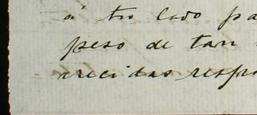 á tu lado pa
peso de tan
crecidas respo